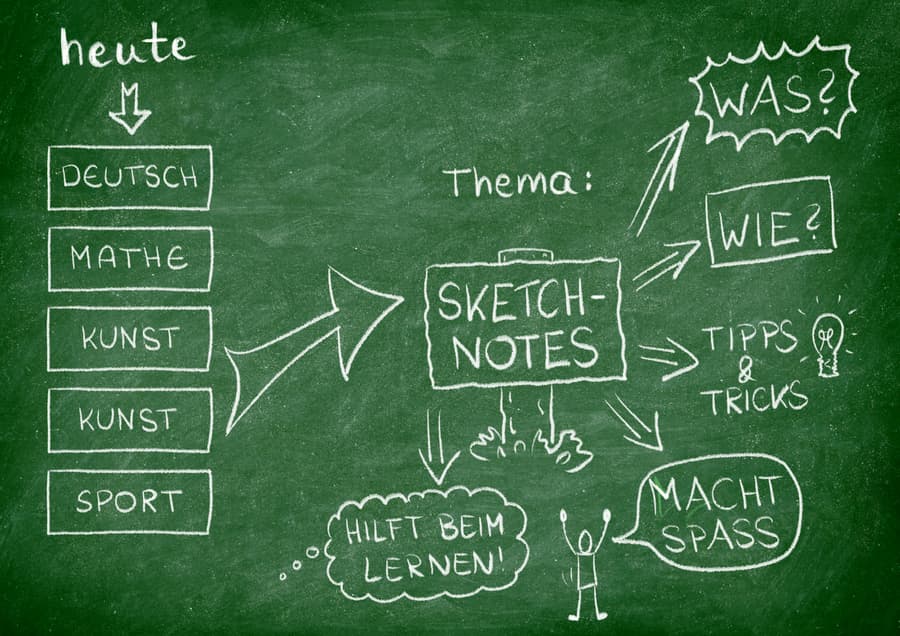 heute
DEUTSCH
MATHE
KUNST
KUNST
SPORT
Thema:
SKETCH-
NOTES
WAS?
WIE?
TIPPS
&
TRICKS
HILFT BEIM
LERNEN!
MACHT
SPASS